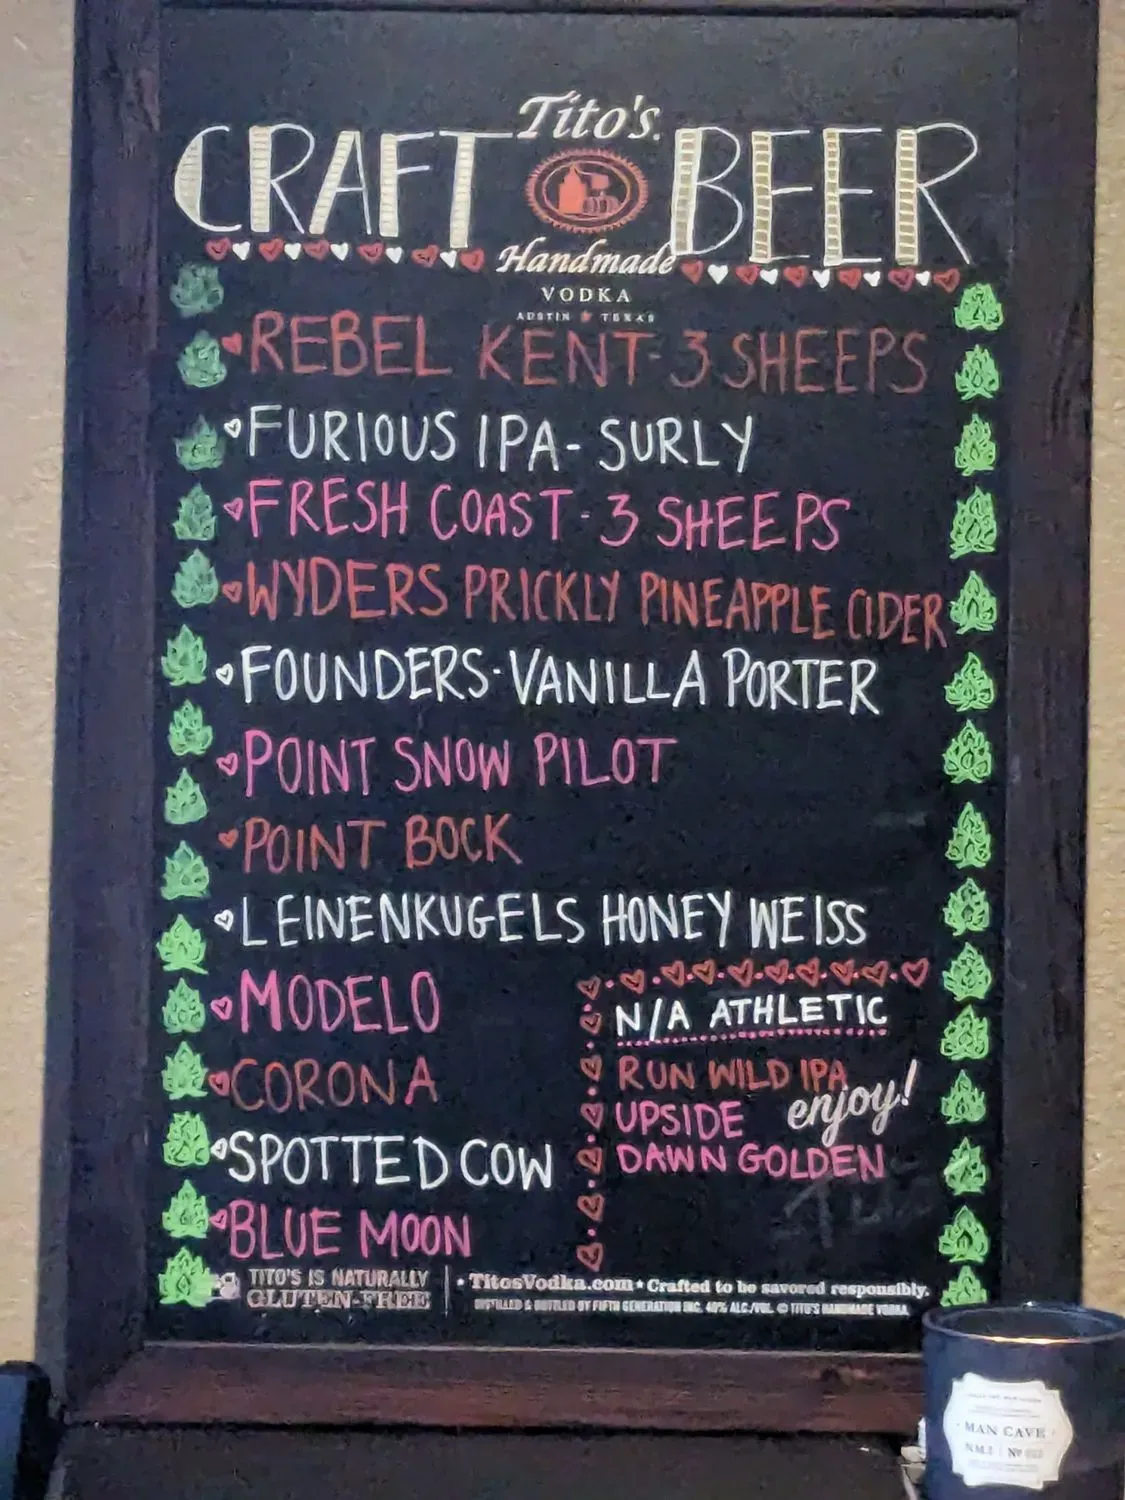 Tito's
CRAFT BEER
Handmade
VODKA
AUSTIN TEXAS
REBEL KENT - 3 SHEEPS
FURIOUS IPA - SURLY
FRESH COAST - 3 SHEEPS
WYDERS PRICKLY PINEAPPLE CIDER
FOUNDERS - VANILLA PORTER
POINT SNOW PILOT
POINT BOCK
LEINENKUGELS HONEY WEISS
MODELO
CORONA
SPOTTED COW
BLUE MOON
N/A ATHLETIC
RUN WILD IPA
enjoy!
UPSIDE
DAWN GOLDEN
TITO'S IS NATURALLY
GLUTEN-FREE
• TitosVodka.com • Crafted to be savored responsibly.
DISTILLED & BOTTLED BY FIFTH GENERATION INC. 40% ALC./VOL. © TITO'S HANDMADE VODKA
MAN CAVE